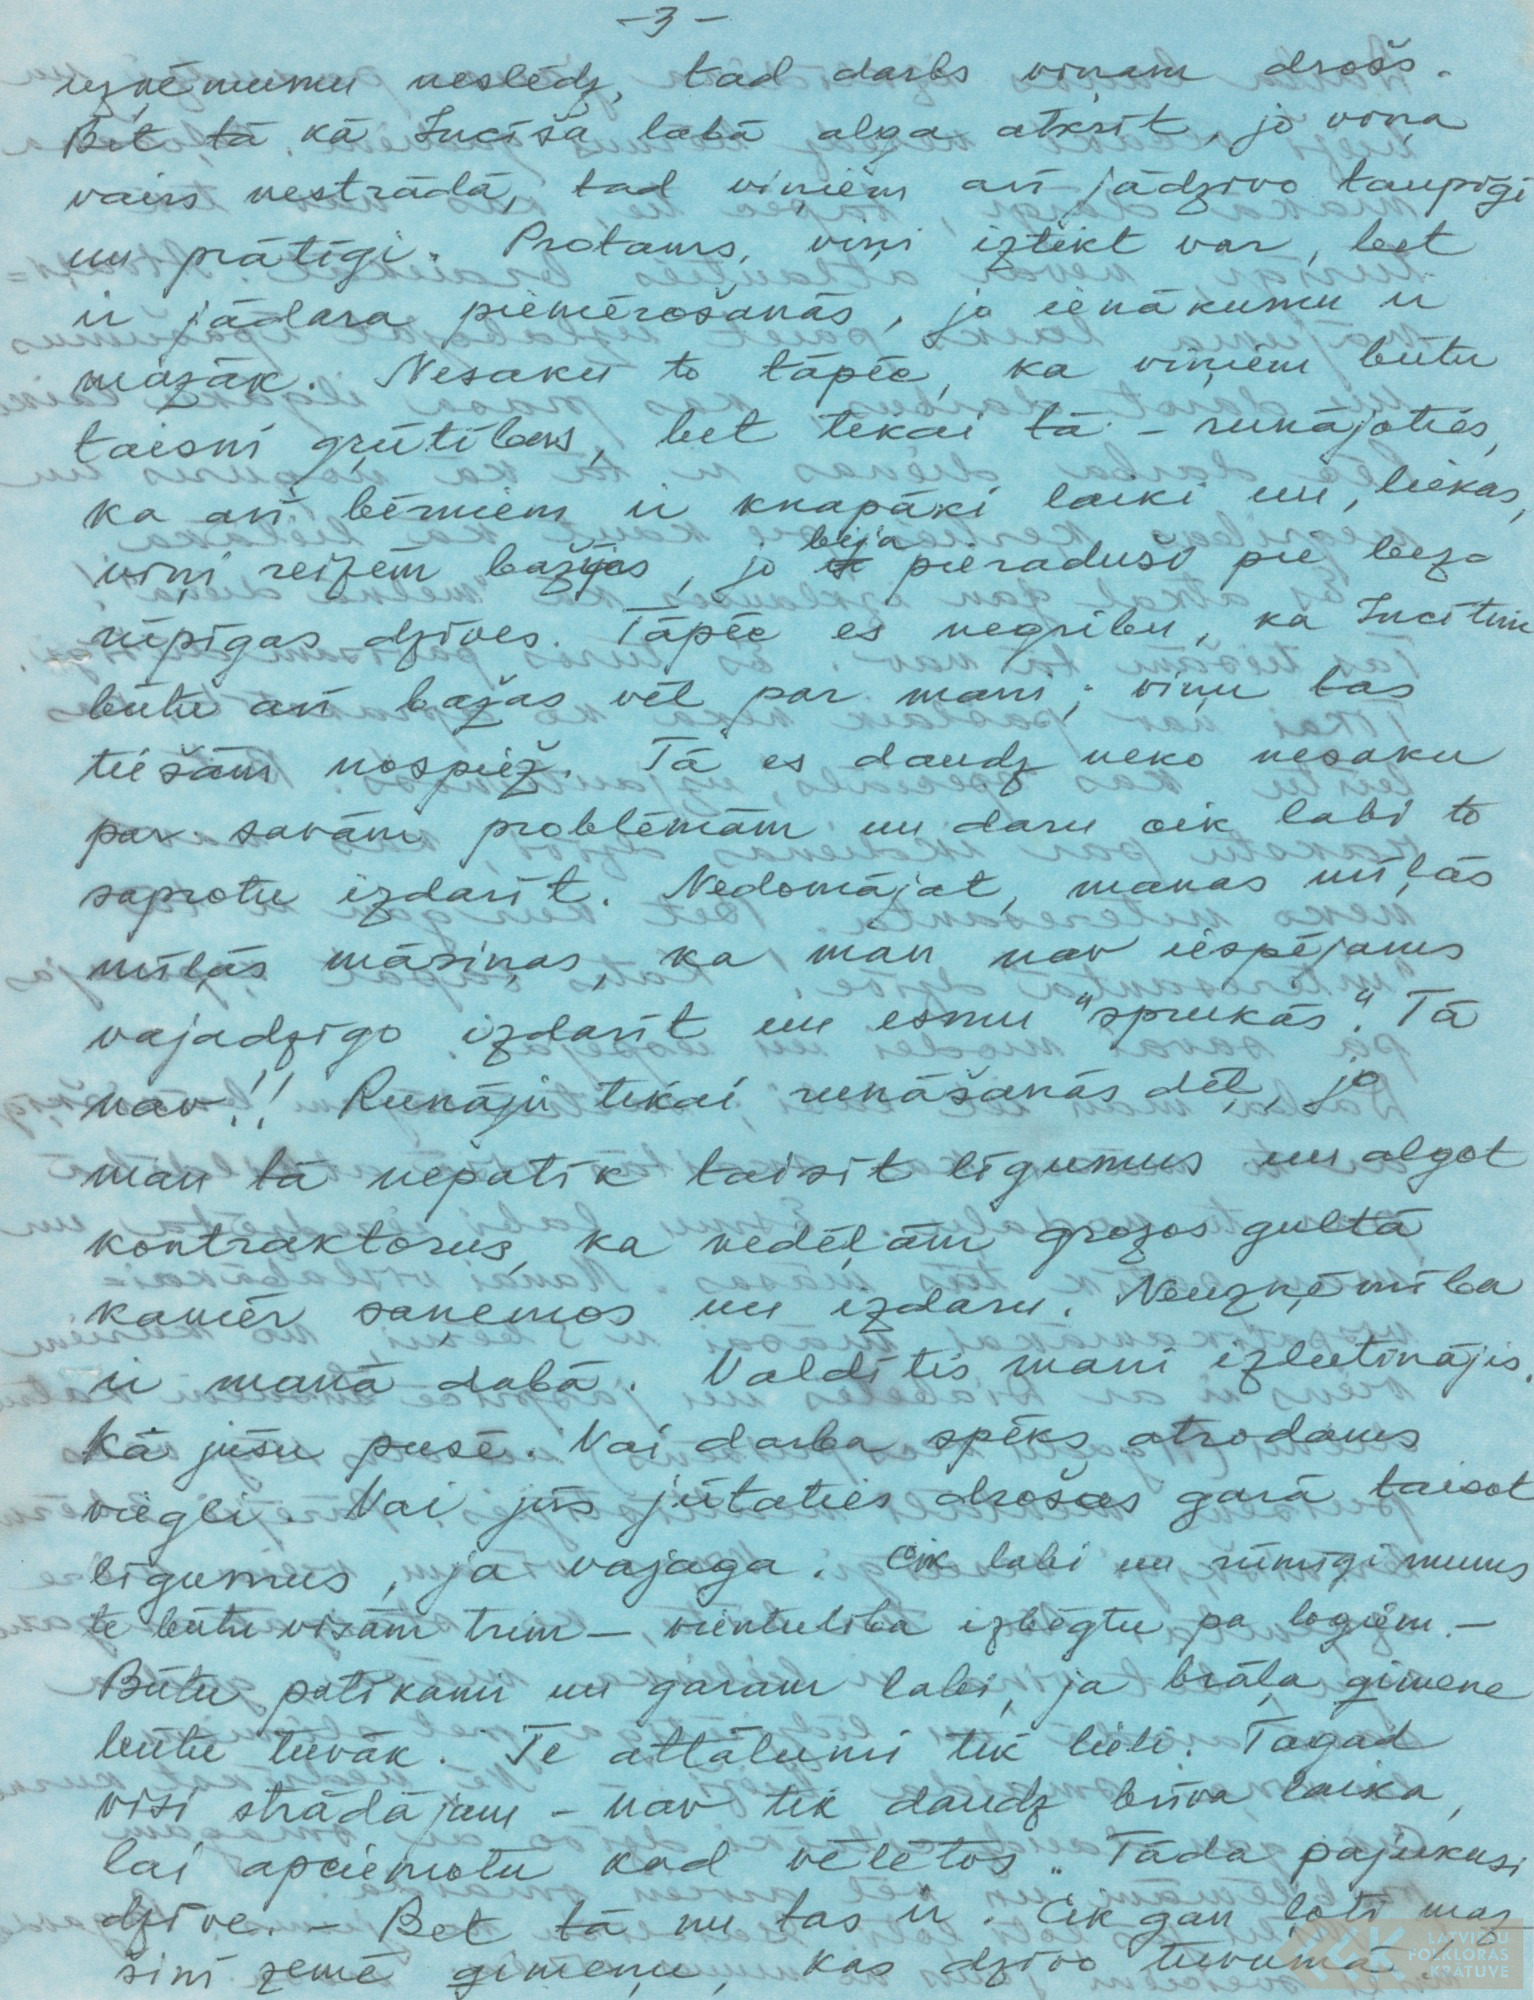 -3-
uzņēmumu neslēdz, tad darbs viņam drošs.
Bet tā kā Incīša labā alga atkrīt, jo viņa
vairs nestrādā, tad viņiem arī jādzīvo taupīgi
un prātīgi. Protams, viņi iztikt var, bet
ir jādara piemērošanās, jo ienākumu ir
mazāk. Nesaku to tāpēc, ka viņiem būtu
taisni grūtības, bet tikai tā - runājoties,
ka arī bērniem ir knapāki laiki un, liekas,
viņi reizēm bažījas, jo bija pieraduši pie bez-
rūpīgas dzīves. Tāpēc es negribu, ka Incītim
būtu arī bažas vēl par mani; viņu tas
tiešām nospiež. Tā es daudz neko nesaku
par savām problēmām un daru cik labi to
saprotu izdarīt. Nedomājat, manas mīļās
mīļās māsiņas, ka man nav iespējams
vajadzīgo izdarīt un esmu "sprukās". Tā
nav!! Runāju tikai runāšanās dēļ, jo
man tā nepatīk taisīt līgumus un algot
kontraktorus, ka nedēļām grozos gultā
kamēr saņemos un izdaru. Neuzņēmība
ir manā dabā. Valdītis mani izlutinājis.
Kā jūsu pusē. Vai darba spēks atrodams
viegli. Vai jūs jūtaties drošas garā taisot
līgumus, ja vajaga. Cik labi un rūmīgi mums
te būtu visām trim - vientulība izbēgtu pa logiem. -
Būtu patīkami un garam labi, ja brāļa ģimene
būtu tuvāk. Te attālumi tik lieli. Tagad
visi strādājam - nav tik daudz brīva laika,
lai apciemotu kad vēlētos.. Tāda pajukusi
dzīve. - Bet tā nu tas ir. Cik gan ļoti maz
šinī zemē ģimeņu, kas dzīvo tuvumā.
LATVIEŠU
FOLKLORAS
KRĀTUVE